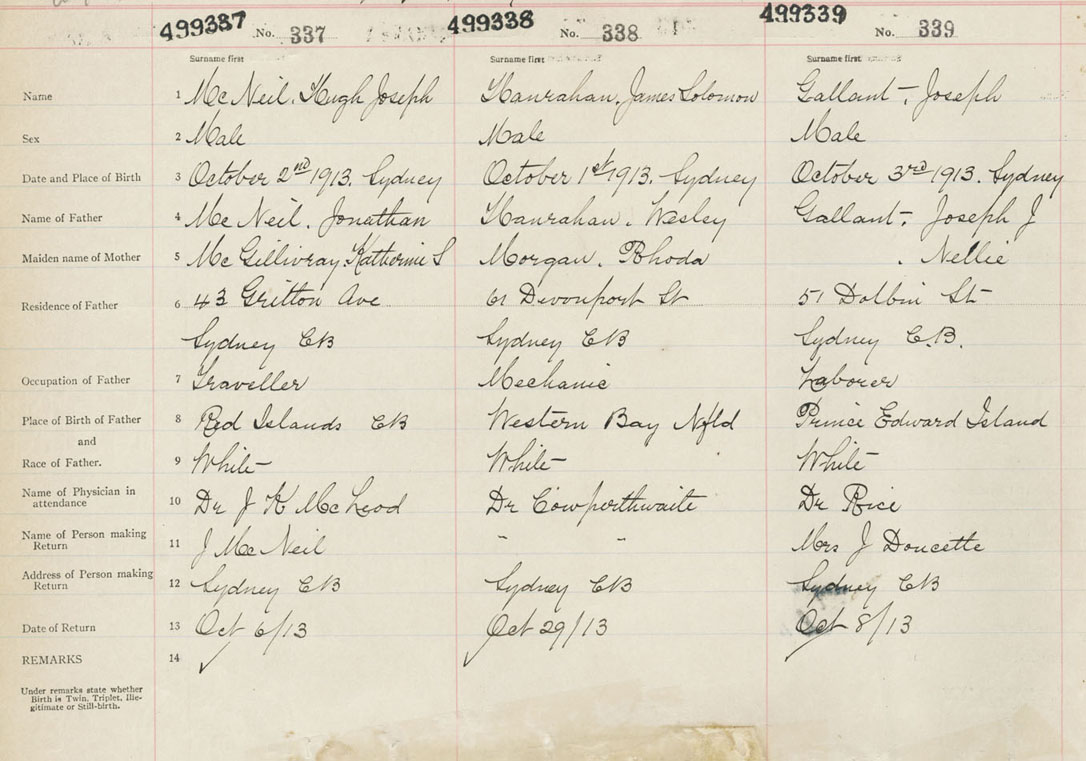 499337 499338 499339
No. 337 No. 338 No. 339
Surname first Surname first Surname first
Name 1 McNeil, Hugh Joseph Hanrahan, James Solomon Gallant, Joseph
Sex 2 Male Male Male
Date and Place of Birth 3 October 2nd 1913. Sydney October 1st 1913. Sydney October 3rd 1913. Sydney
Name of Father 4 McNeil, Jonathan Hanrahan, Wesley Gallant, Joseph J
Maiden name of Mother 5 McGillivray, Katherine S Morgan, Rhoda , Nellie
Residence of Father 6 43 Gritton Ave 61 Devonport St 51 Dolbin St
Sydney CB Sydney CB Sydney C.B.
Occupation of Father 7 Traveller Mechanic Laborer
Place of Birth of Father 8 Red Islands CB Western Bay Nfld Prince Edward Island
and
Race of Father. 9 White White White
Name of Physician in attendance 10 Dr J K McLeod Dr Cowperthwaite Dr Rice
Name of Person making Return 11 J McNeil " " Mrs J Doucette
Address of Person making Return 12 Sydney CB Sydney CB Sydney CB
Date of Return 13 Oct 6/13 Oct 29/13 Oct 8/13
REMARKS 14
Under remarks state whether
Birth is Twin, Triplet, Ille-
gitimate or Still-birth.